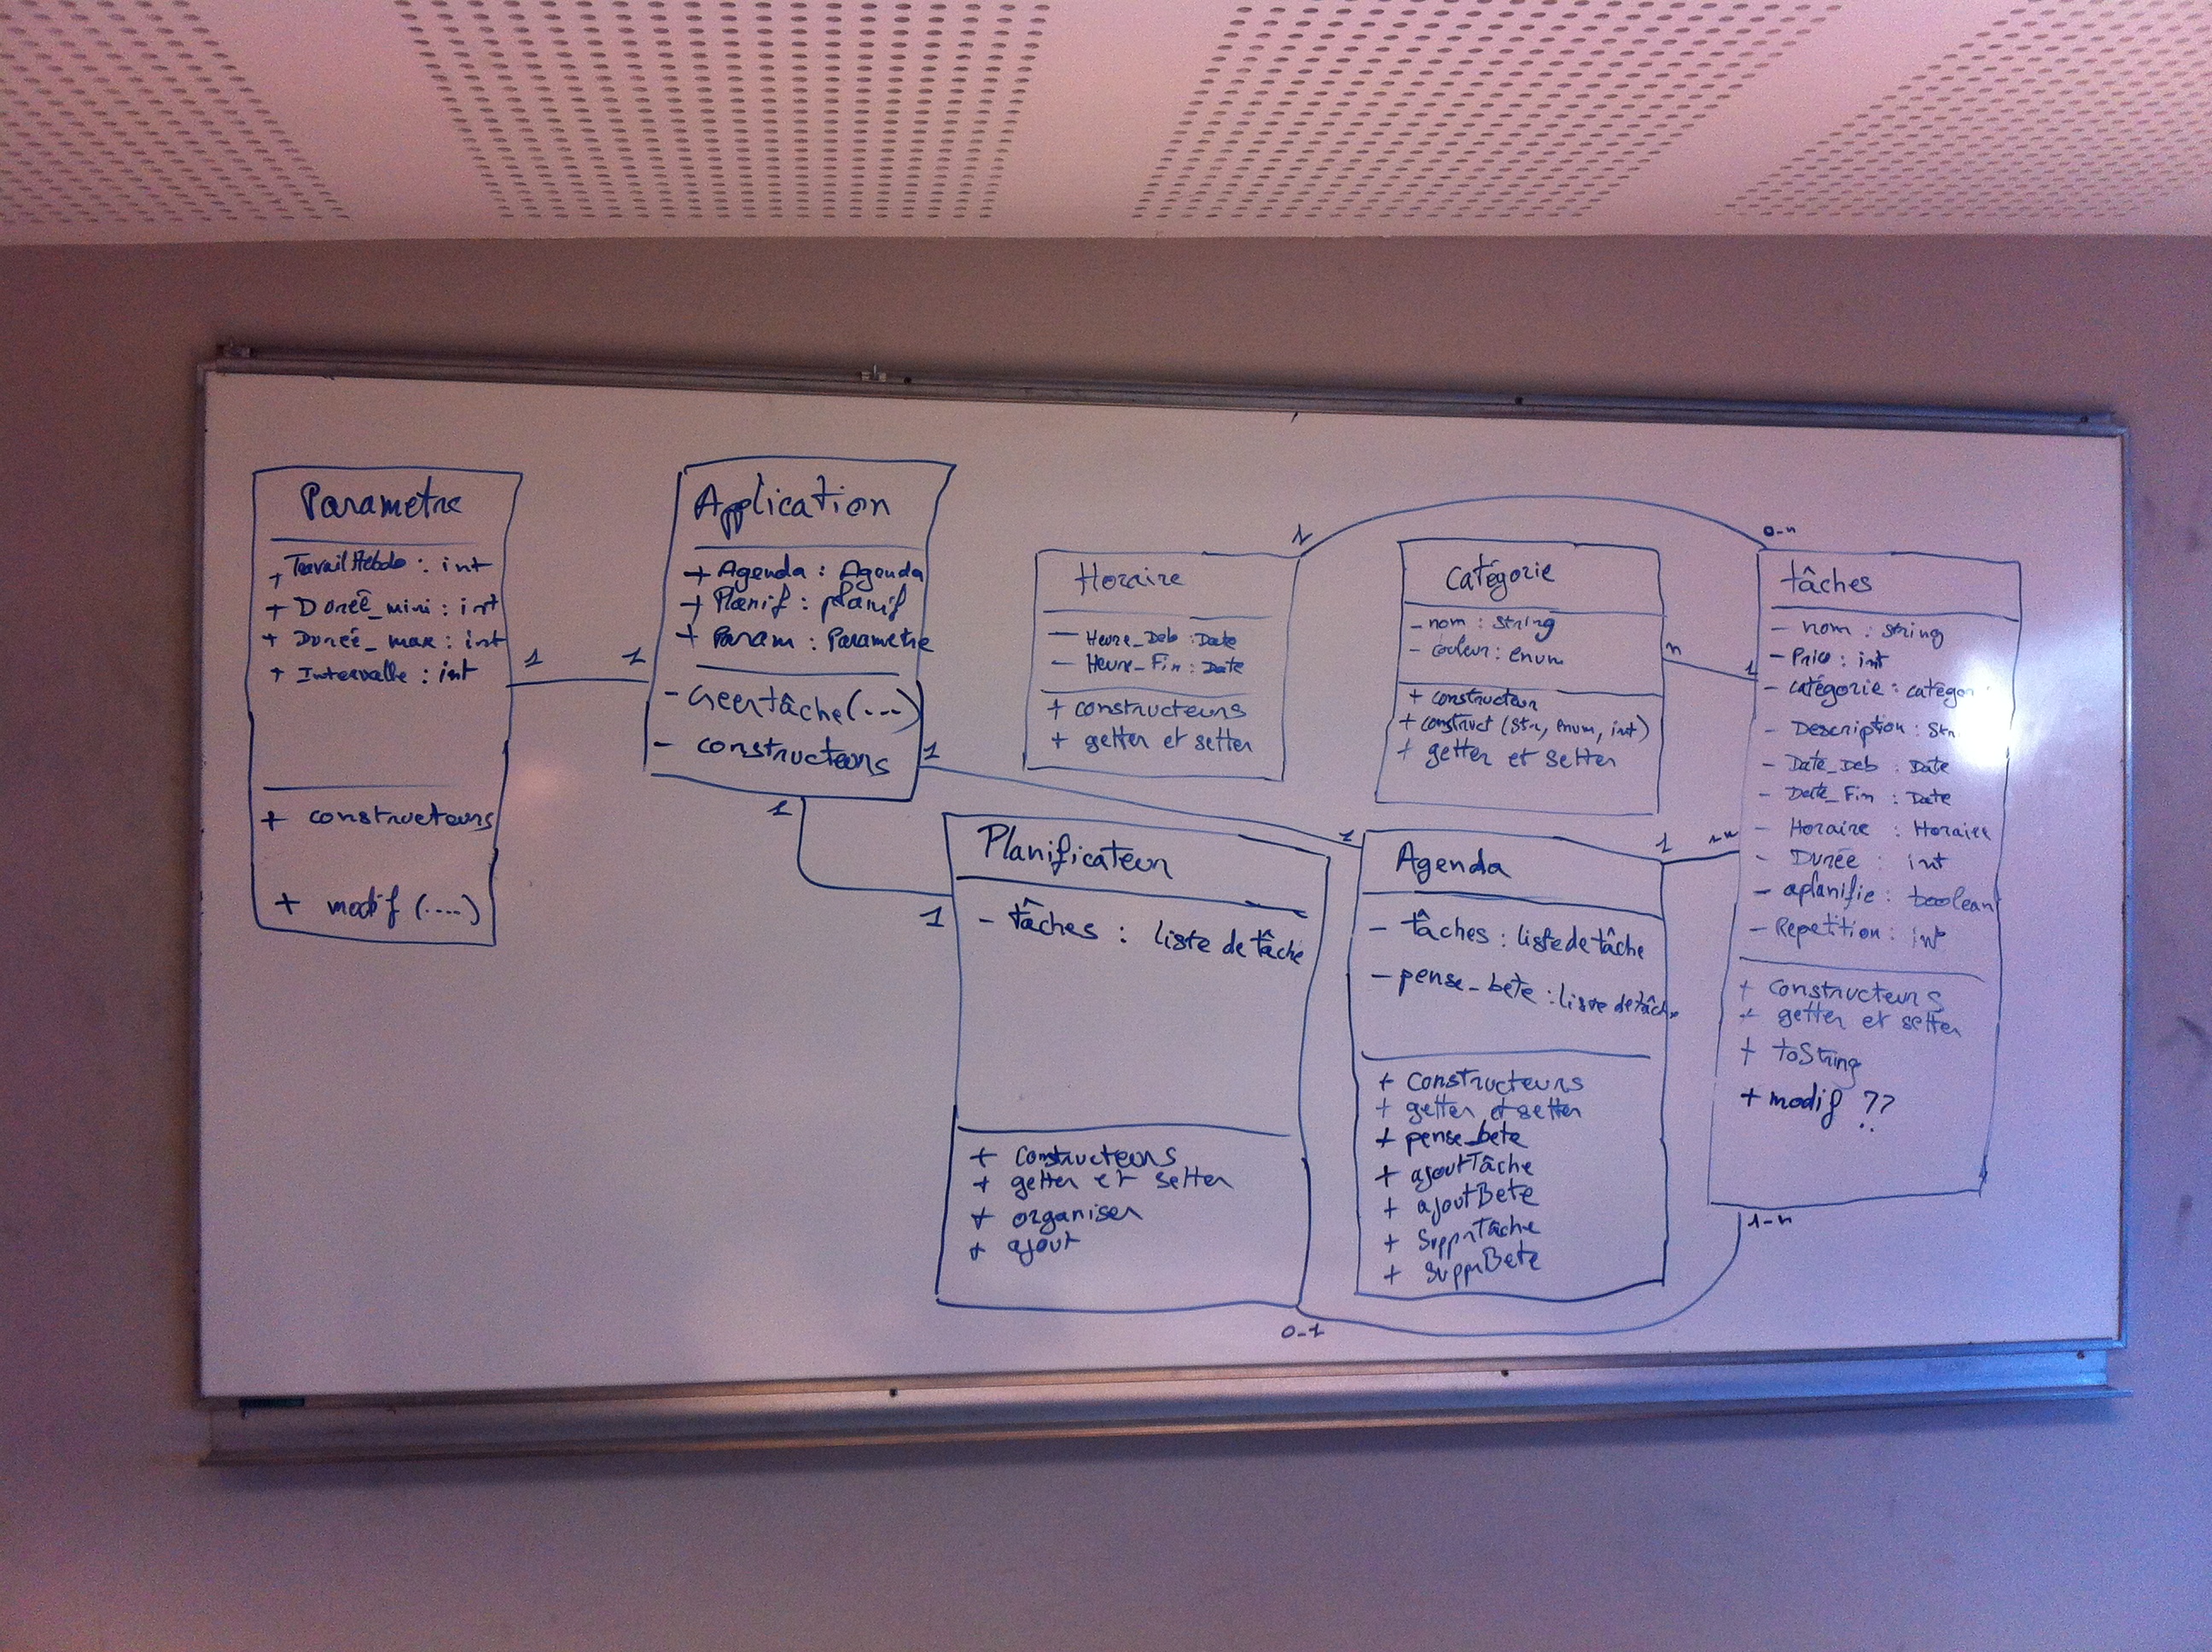 Parametre
+ TravailHebdo : int
+ Durée_mini : int
+ Durée_max : int
+ Intervalle : int
+ constructeurs
+ modif (....)
1
1
Application
+ Agenda : Agenda
+ Planif : planif
+ Param : Parametre
- creertâche(...)
- constructeurs
1
1
Horaire
- Heure_Deb : Date
- Heure_Fin : Date
+ constructeurs
+ getter et setter
1
0-n
Catégorie
- nom : string
- couleur : enum
+ constructeur
+ construct (Str, enum, int)
+ getter et setter
n
1
tâches
- nom : string
- Prio : int
- catégorie : catégo
- Description : Str
- Date_Deb : Date
- Date_Fin : Date
- Horaire : Horaire
- Durée : int
- aplanifie : boolean
- Repetition : int
+ constructeurs
+ getter et setter
+ toString
+ modif ??
1-n
Planificateur
1
- tâches : liste de tâche
+ constructeurs
+ getter et setter
+ organiser
+ ajout
0-1
1
Agenda
1
- tâches : liste de tâche
- pense_bete : liste de tâche
+ constructeurs
+ getter et setter
+ pense_bete
+ ajoutTâche
+ ajoutBete
+ SupprTâche
+ SupprBete